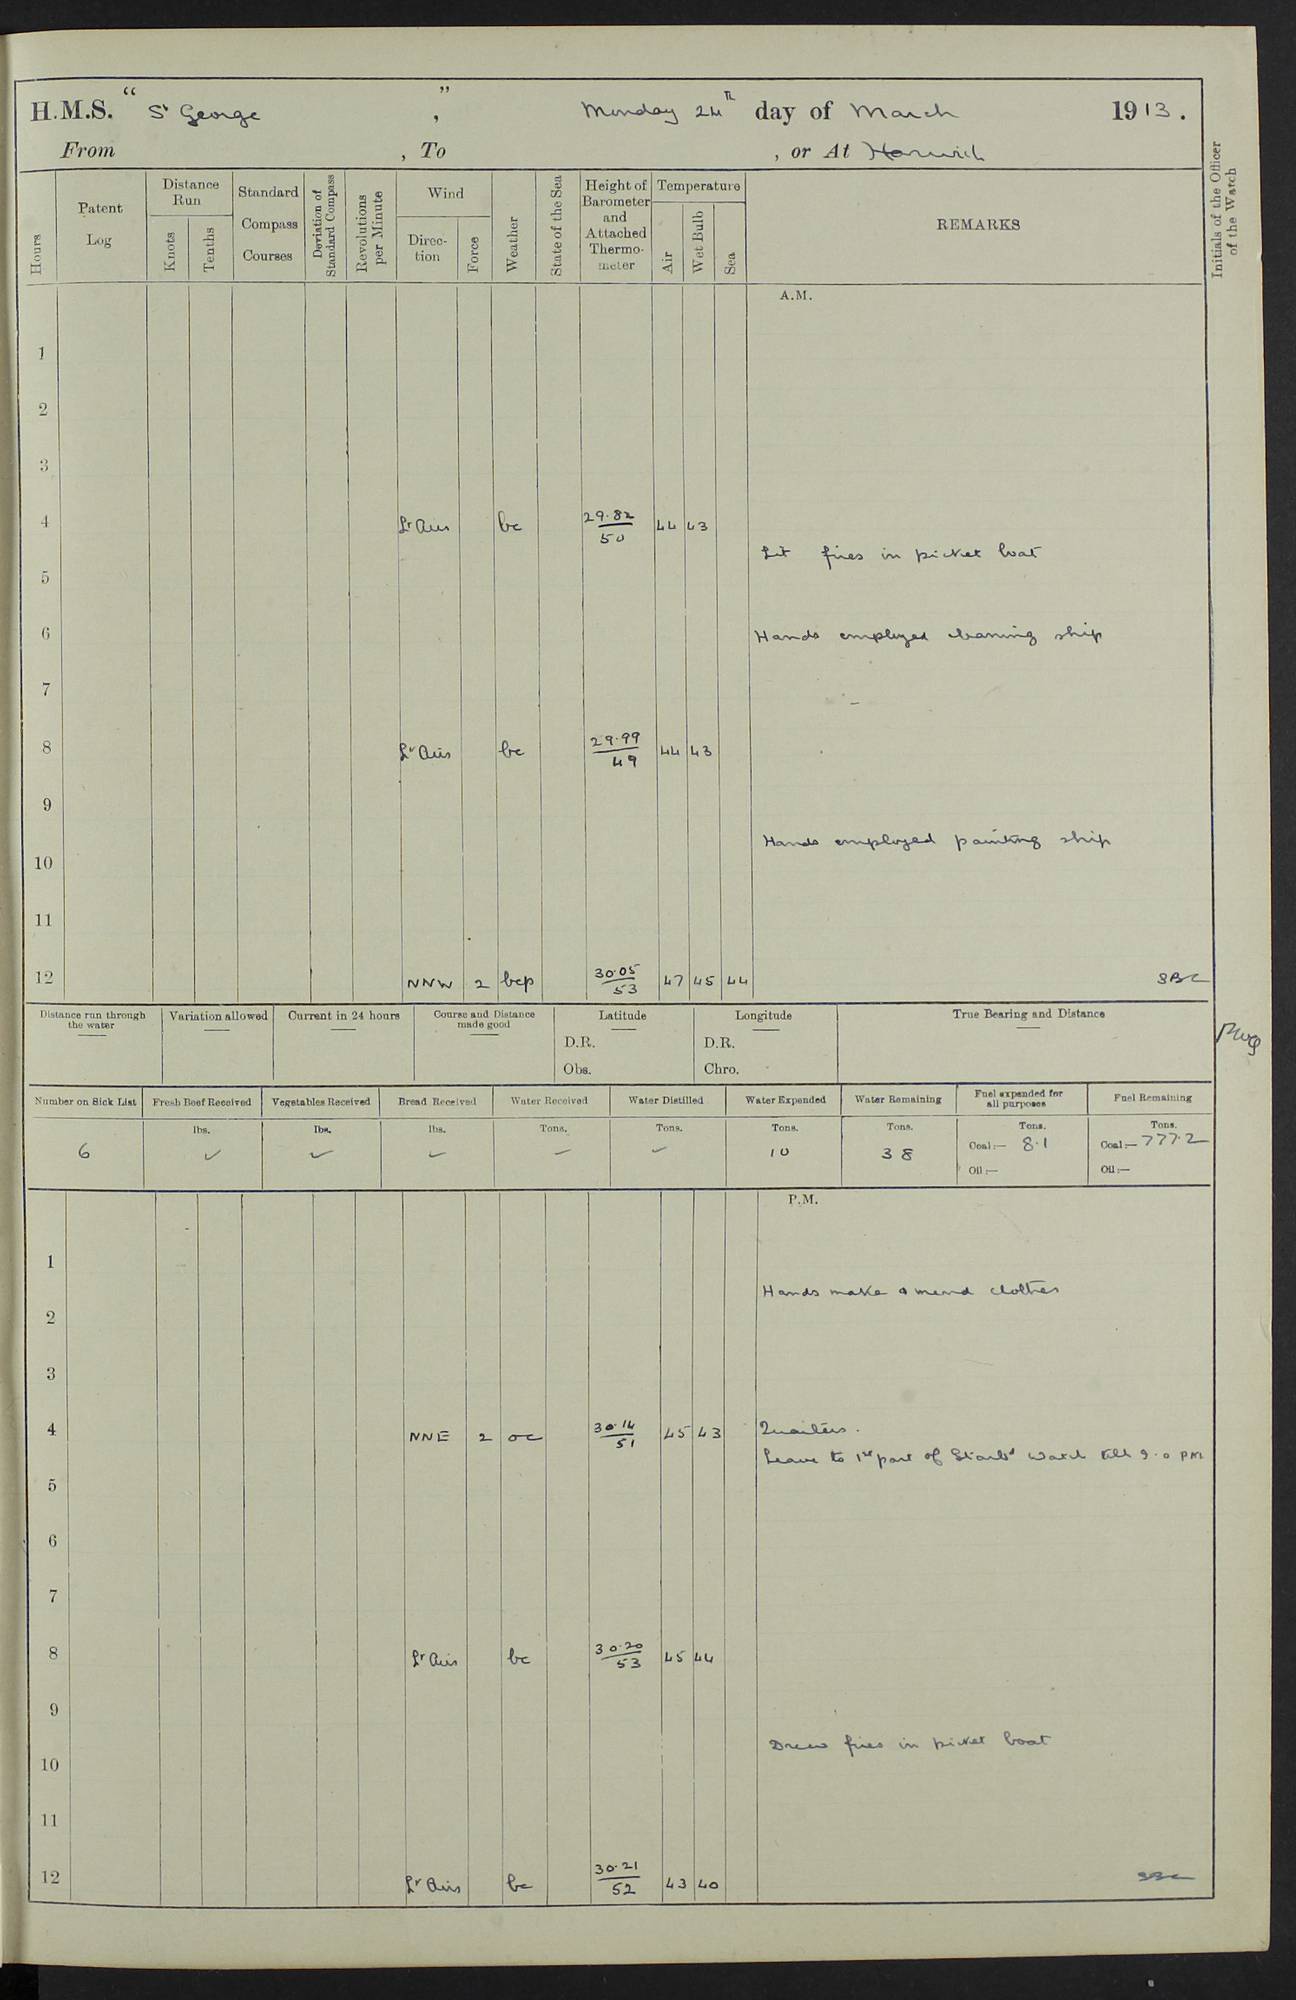 H.M.S. " St George , " Monday 24th day of March 1913.
From , To , or At Harwich
Hours
Patent Log
Distance Run
Knots
Tenths
Standard Compass Courses
Deviation of Standard Compass
Revolutions per Minute
Wind
Direction
Force
Weather
State of the Sea
Height of Barometer and Attached Thermometer
Temperature
Air
Wet Bulb
Sea
REMARKS
Initials of the Officer of the Watch
A.M.
1
2
3
4 Lt Airs bc 29.82/50 44 43
Lit fires in picket boat
5
6 Hands employed cleaning ship
7
8 Lt Airs bc 29.99/49 44 43
9
Hands employed painting ship
10
11
12 NNW 2 bcp 30.05/53 47 45 44 SBC
Distance run through the water
Variation allowed
Current in 24 hours
Course and Distance made good
Latitude
D.R.
Obs.
Longitude
D.R.
Chro.
True Bearing and Distance
Number on Sick List Fresh Beef Received Vegetables Received Bread Received Water Received Water Distilled Water Expended Water Remaining Fuel expended for all purposes Fuel Remaining
lbs. lbs. lbs. Tons. Tons. Tons. Tons. Tons. Tons.
6 ✓ ✓ ✓ ✓ ✓ 10 38 Coal:— 8.1 Coal:— 777.2
Oil:— Oil:—
P.M.
1
Hands make & mend clothes
2
3
4 NNE 2 oc 30.14/51 45 43 Quarters.
Leave to 1st part of Starbd Watch till 9.0 PM
5
6
7
8 Lt Airs bc 30.20/53 45 44
9
Drew fires in picket boat
10
11
12 Lt Airs bc 30.21/52 43 40 SBC